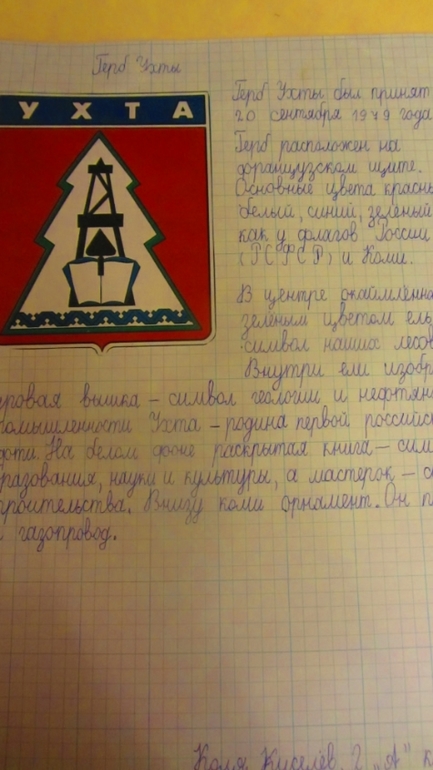 Герб Ухты
УХТА
Герб Ухты был принят
20 сентября 1979 года
Герб расположен на
французском щите.
Основные цвета красн
белый, синий, зелёный
как у флагов России
(РСФСР) и Коми.
В центре окаймлённа
зелёным цветом ель
символ наших лесов
Внутри ели изобр
ровая вышка - символ геологии и нефтян
омышленности Ухта - родина первой российск
фти. На белом фоне раскрытая книга - сим
разования, науки и культуры, а мастерок - с
роительства. Внизу коми орнамент. Он п
газопровод.
Коля Киселёв. 2 "А" к